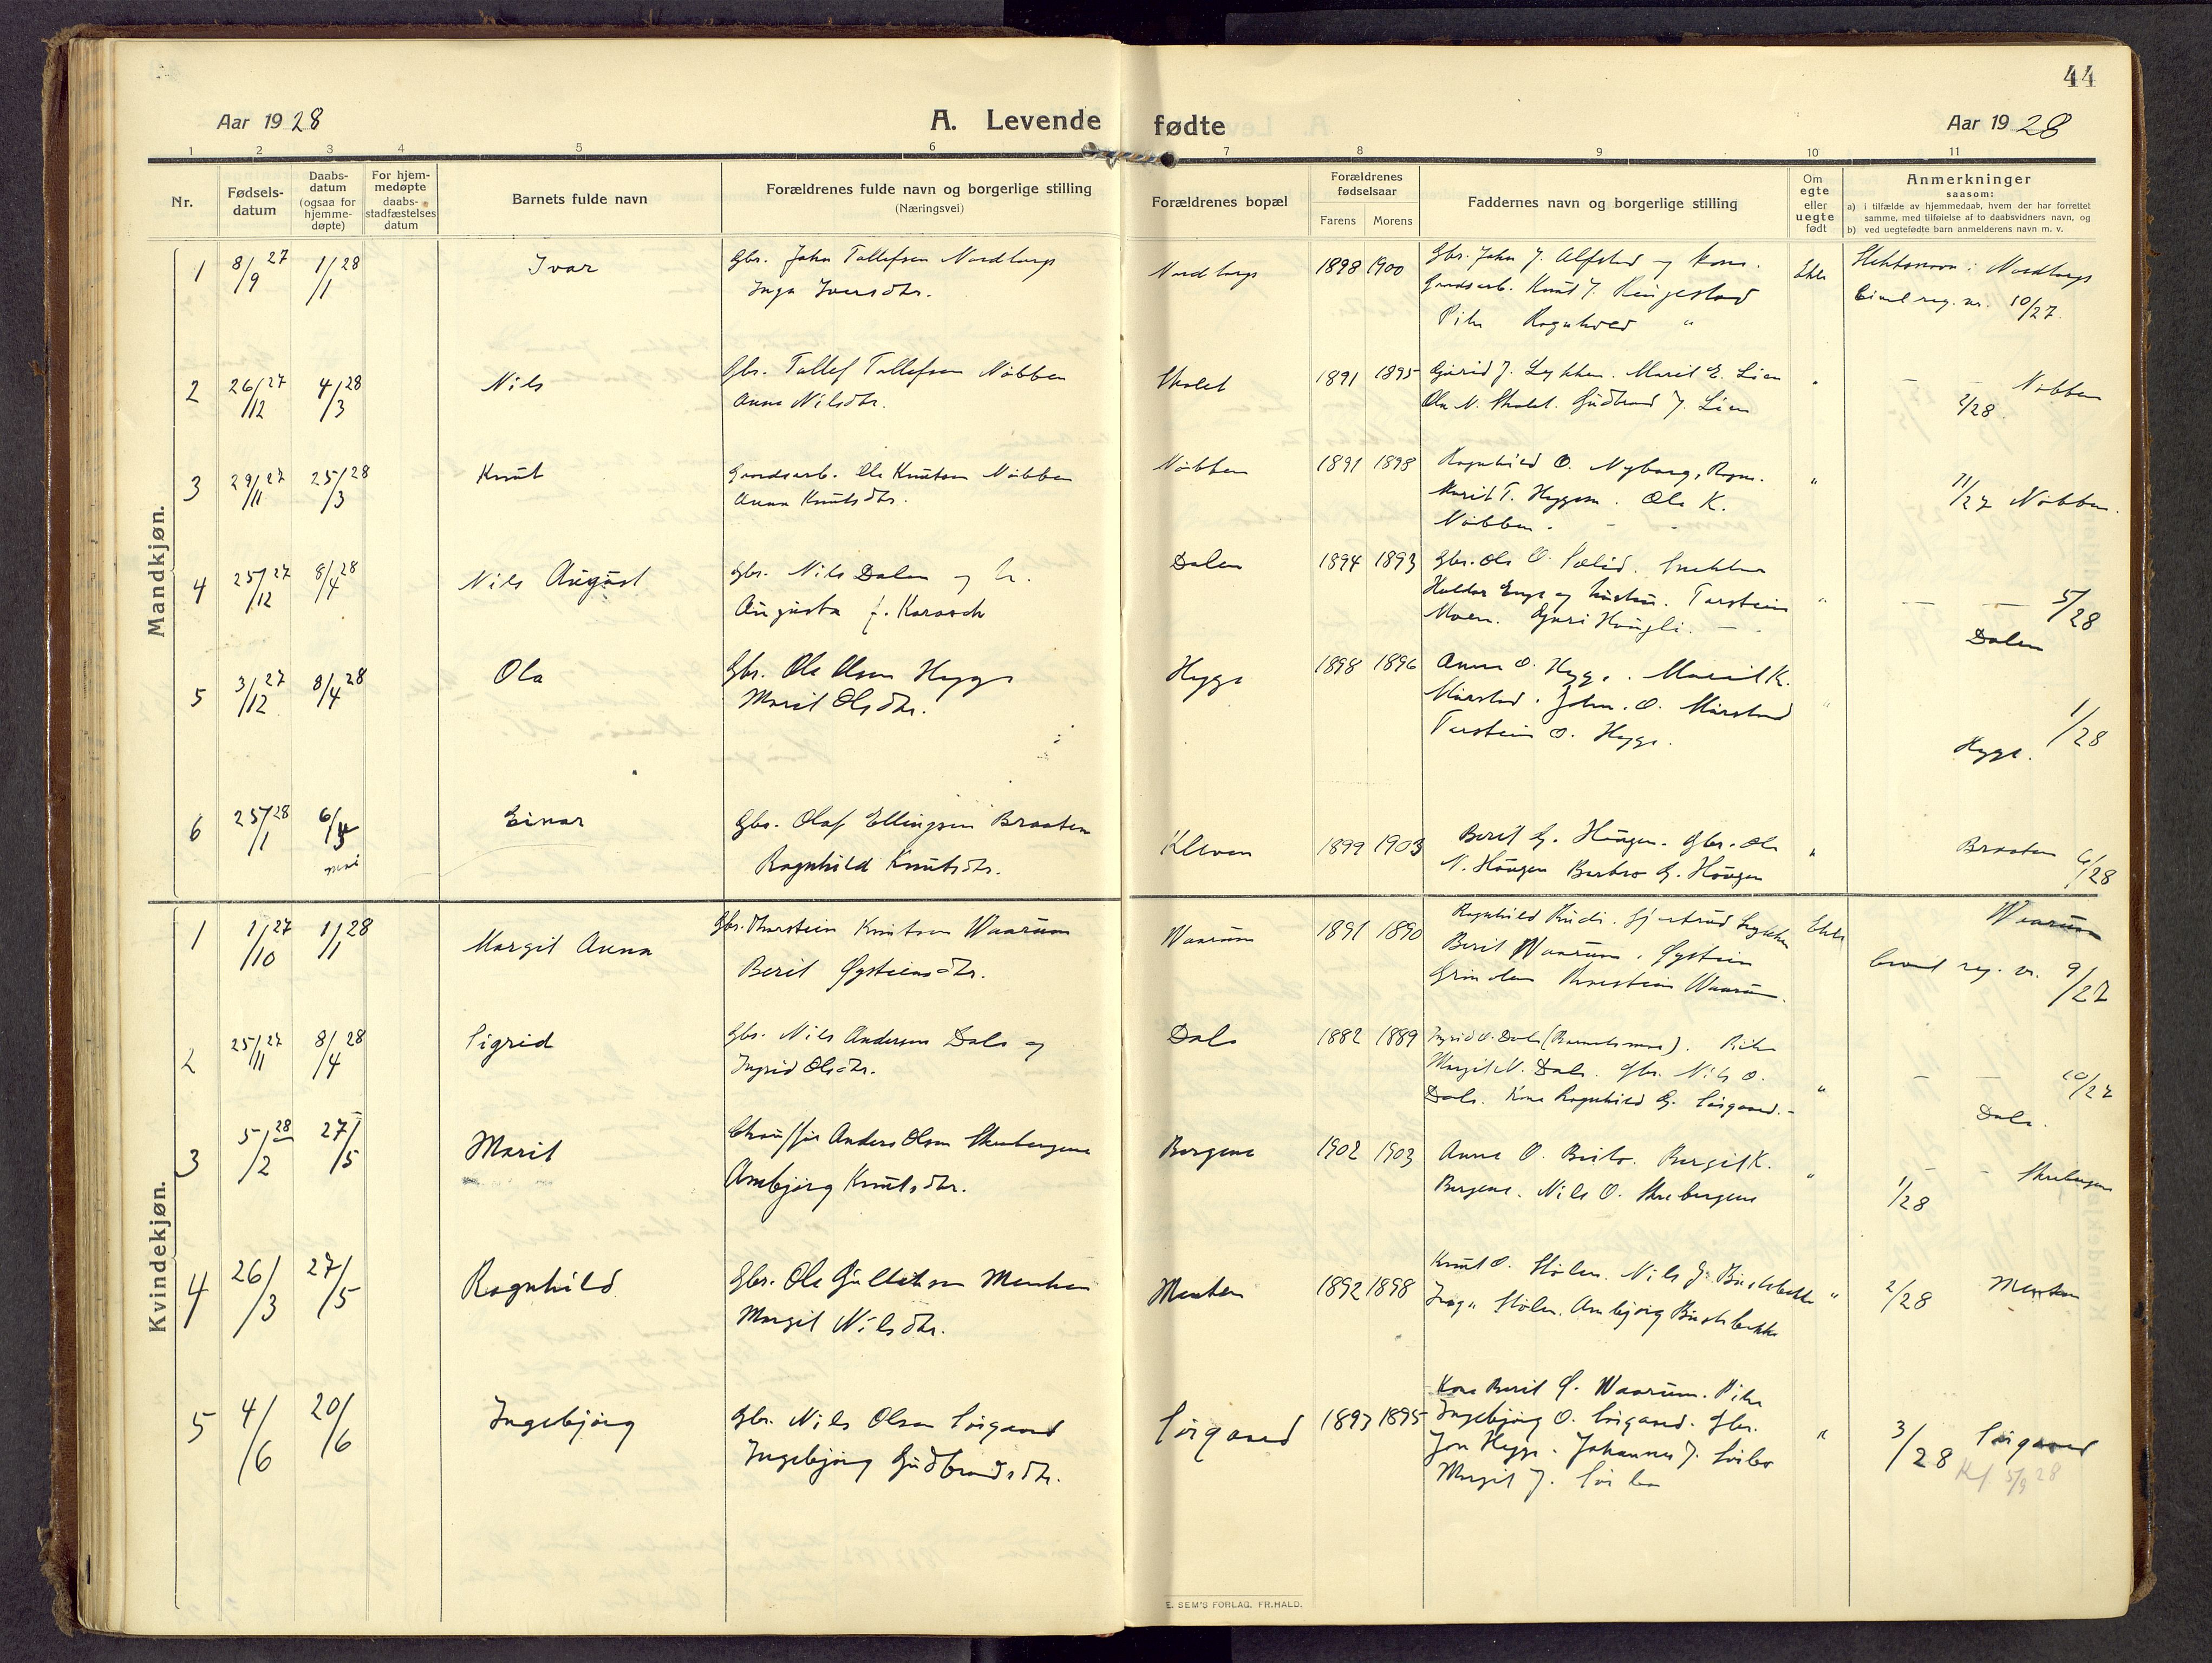 44
Aar 1928
A. Levende fødte
Aar 1928
1 2 3 4 5 6 7 8 9 10 11
Nr.
Fødsels-
datum
Daabs-
datum
(ogsaa for
hjemme-
døpte)
For hjem-
medøpte
daabs-
stadfæstelses
datum
Barnets fulde navn
Forældrenes fulde navn og borgerlige stilling
(Næringsvei)
Forældrenes bopæl
Forældrenes
fødselsaar
Farens Morens
Faddernes navn og borgerlige stilling
Om
egte
eller
uegte
født
Anmerkninger
saasom:
a) i tilfælde av hjemmedaab, hvem der har forrettet
samme, med tilføielse af to daabsvidners navn, og
b) ved uegtefødte barn anmelderens navn m. v.
Mandkjøn.
1 8/9 27 1/1 28 Ivar Gbr. John Tollefsen Nordlurgs
Inga Iversdtr.
1898 1900 Gbr. John J. Alfstad og kone.
Gaardsarb. Knut J. Ringestad
Pike Ragnhild "
Ekte
Civil reg. nr. 10/27.
2 26/12 27 4/3 28 Nils Gbr. Tollef Tollefsen Nøbben
Anna Nilsdtr.
Skolet 1891 1895 Gurid J. Lykken. Marit E. Lien
Ola N. Skolet. Gudbrand J. Lien
" - - Nøbben
2/28.
3 29/11 27 25/3 28 Knut Gaardsarb. Ole Knutsen Nøbben
Anna Knutsdtr.
Nøbben 1891 1898 Ragnhild O. Nyborg, Rogn.
Marit T. Heggen. Ole K.
Nøbben. - -
" 11/27 Nøbben.
4 25/12 27 8/4 28 Nils August Gbr. Nils Dalen og h.
Augusta f. Karasch
Dalen 1894 1893 Gbr. Ole O.
Haldor Enge og hustru. Torstein
Moen. Guri Haugli. -
" - - 5/28
Dalen
5 3/12 27 8/4 28 Ola Gbr. Ole Olsen Hegge
Marit Olsdtr.
Hegge 1898 1896 Anne O. Hegge. Marit K.
Mørstad. John. O. Mørstad
Torstein O. Hegge.
" 1/28
Hegge.
6 25/1 28 6/5
mai
Einar Gbr. Olaf Ellingsen Braaten
Ragnhild Knutsdtr.
Kleven 1899 1903 Berit G. Haugen. Gbr. Ole
N. Haugen Barbro G. Haugen
" Braaten 6/28
Kvindekjøn.
1 1/10 27 1/1 28 Margit Anna Gbr. Thorstein Knutsen Waarum
Berit Øysteinsdtr.
Waarum 1891 1890 Ragnhild Rudi. Gjertrud Lykken
Berit Waarum. Øystein
Grinden Thorstein Waarum.
Ekte Waarum
Civil reg. nr. 9/27
2 25/11 27 8/4 28 Sigrid Gbr. Nils Andersen Dale og
Ingrid Olsdtr.
Dale 1882 1889 Ingrid O. Dale (Barnets mor). Pike
Margit N. Dale. Gbr. Nils O.
Dale. Kone Ragnhild G. Sørgaard. -
" - - 10/27
Dale.
3 5/2 28 27/5 Marit Chauffør Anders Olsen Skrebergene
Ambjørg Knutsdtr.
Bergene 1902 1903 Anne O. Beito. Bergit K.
Bergene. Nils O. Skrebergene
" - - Skrebergene
1/28
4 26/3 27/5 Ragnhild Gbr. Ole Gulliksen Menken
Margit Nilsdtr.
1892 1898 Knut O. Stølen. Nils G.
Inga Stølen. Ambjørg
" 2/28
5 4/6 20/6 Ingebjørg Gbr. Nils Olsen Sørgaard
Ingebjørg Gudbrandsdtr.
Sørgaard 1893 1895 Kone Berit Ø. Waarum. Pike
Ingebjørg O. Sørgaard. Gbr.
Jon Hegge. Johannes J. Sørbo
Margit J. Sørbo
" 3/28 Sørgaard
Kf 5/9 28
E. SEM'S FORLAG. FR.HALD.